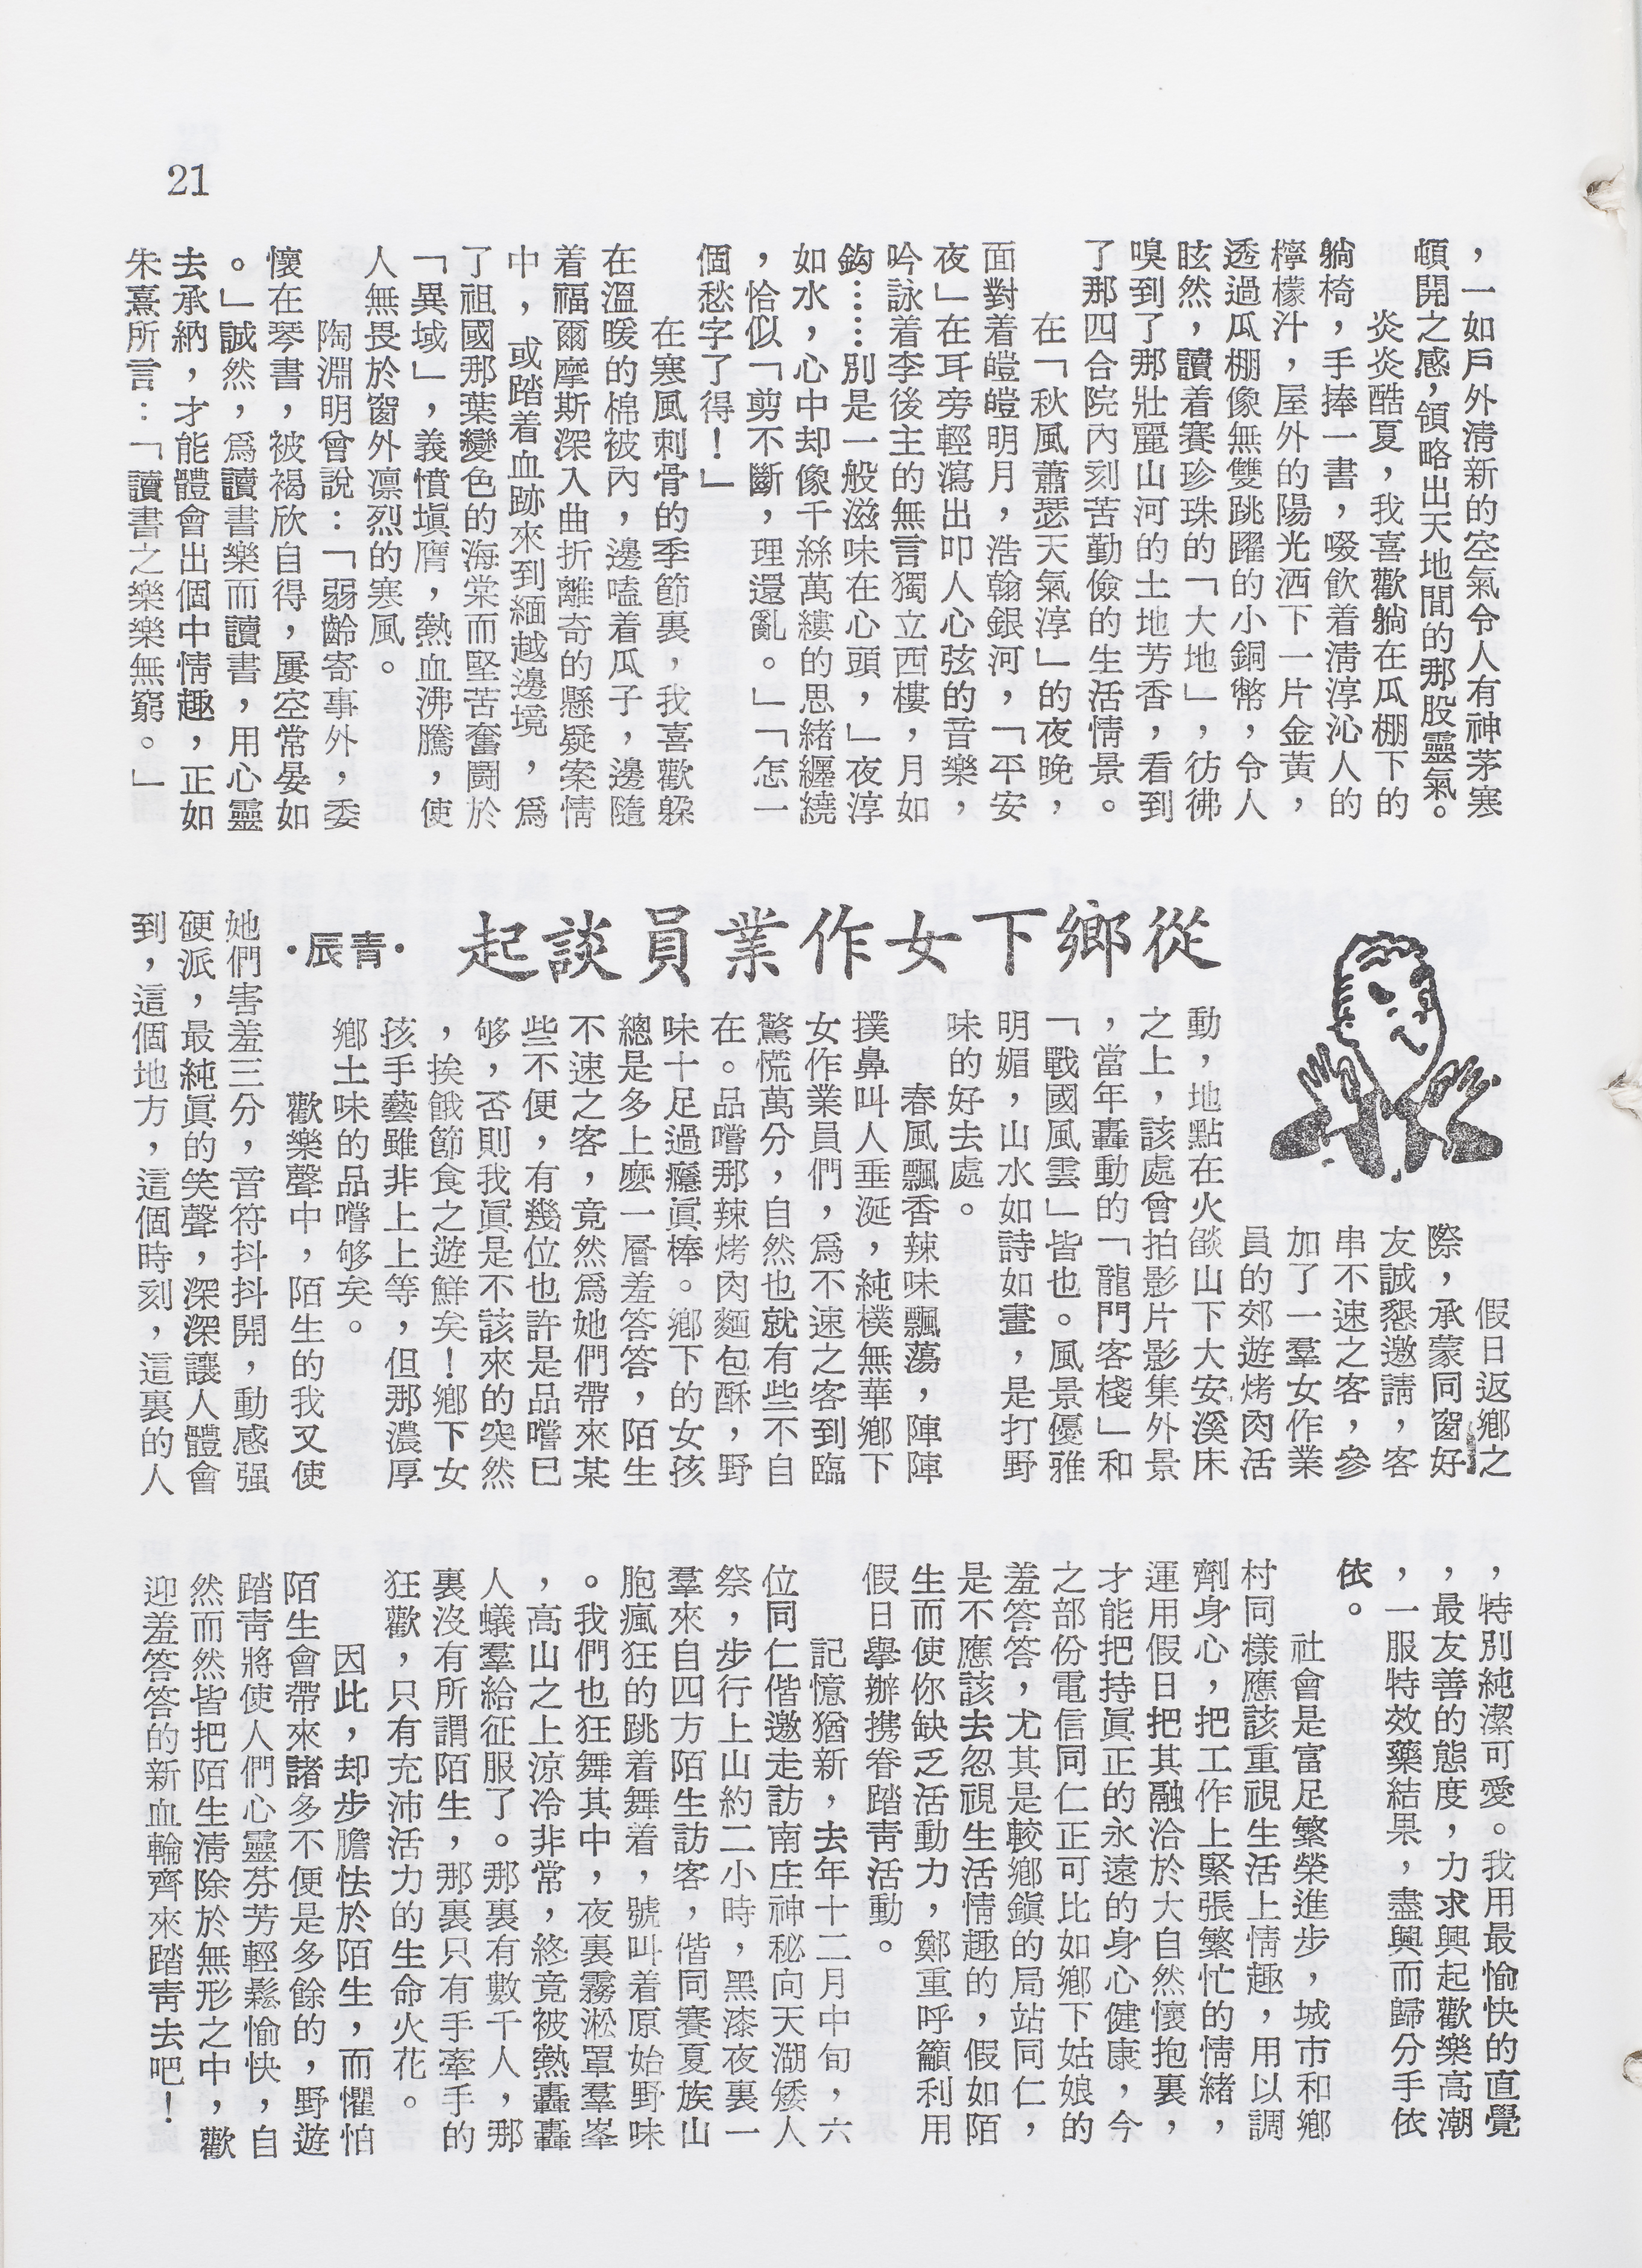 21
，一如戶外清新的空氣令人有神茅塞
頓開之感，領略出天地間的那股靈氣。
炎炎酷夏，我喜歡躺在瓜棚下的
躺椅，手捧一書，啜飲着清淳沁人的
檸檬汁，屋外的陽光洒下一片金黃，
透過瓜棚像無雙跳躍的小銅幣，令人
眩然，讀着賽珍珠的「大地」，彷彿
嗅到了那壯麗山河的土地芳香，看到
了那四合院內刻苦勤儉的生活情景。
在「秋風蕭瑟天氣淳」的夜晚，
面對着皚皚明月，浩翰銀河，「平安
夜」在耳旁輕瀉出叩人心弦的音樂，
吟詠着李後主的無言獨立西樓，月如
鈎……別是一般滋味在心頭，」夜淳
如水，心中却像千絲萬縷的思緒纏繞
，恰似「剪不斷，理還亂。」「怎一
個愁字了得！」
在寒風刺骨的季節裏，我喜歡躱
在溫暖的棉被內，邊嗑着瓜子，邊隨
着福爾摩斯深入曲折離奇的懸疑案情
中，或踏着血跡來到緬越邊境，爲
了祖國那葉變色的海棠而堅苦奮鬪於
「異域」，義憤塡膺，熱血沸騰，使
人無畏於窗外凛烈的寒風。
陶淵明曾說：「弱齡寄事外，委
懷在琴書，被褐欣自得，屢空常晏如
。」誠然，爲讀書樂而讀書，用心靈
去承納，才能體會出個中情趣，正如
朱熹所言：「讀書之樂樂無窮。」
從鄉下女作業員談起
·青辰·
假日返鄉之
際，承蒙同窗好
友誠懇邀請，客
串不速之客，參
加了一羣女作業
員的郊遊烤肉活
動，地點在火燄山下大安溪床
之上，該處曾拍影片影集外景
，當年轟動的「龍門客棧」和
「戰國風雲」皆也。風景優雅
明媚，山水如詩如畫，是打野
味的好去處。
春風飄香辣味飄蕩，陣陣
撲鼻叫人垂涎，純樸無華鄉下
女作業員們，爲不速之客到臨
驚慌萬分，自然也就有些不自
在。品嚐那辣烤肉麵包酥，野
味十足過癮眞棒。鄉下的女孩
總是多上麼一層羞答答，陌生
不速之客，竟然爲她們帶來某
些不便，有幾位也許是品嚐已
够，否則我眞是不該來的突然
，挨餓節食之遊鮮矣！鄉下女
孩手藝雖非上上等，但那濃厚
鄉土味的品嚐够矣。
歡樂聲中，陌生的我又使
她們害羞三分，音符抖抖開，動感强
硬派，最純眞的笑聲，深深讓人體會
到，這個地方，這個時刻，這裏的人
，特別純潔可愛。我用最愉快的直覺
，最友善的態度，力求興起歡樂高潮
，一服特效藥結果，盡興而歸分手依
依。
社會是富足繁榮進步，城市和鄉
村同樣應該重視生活上情趣，用以調
劑身心，把工作上緊張繁忙的情緒，
運用假日把其融洽於大自然懷抱裏，
才能把持眞正的永遠的身心健康，今
之部份電信同仁正可比如鄉下姑娘的
羞答答，尤其是較鄉鎭的局站同仁，
是不應該去忽視生活情趣的，假如陌
生而使你缺乏活動力，鄭重呼籲利用
假日舉辦携眷踏青活動。
記憶猶新，去年十二月中旬，六
位同仁偕邀走訪南庄神秘向天湖矮人
祭，步行上山約二小時，黑漆夜裏一
羣來自四方陌生訪客，偕同賽夏族山
胞瘋狂的跳着舞着，號叫着原始野味
。我們也狂舞其中，夜裏霧淞罩羣峯
，高山之上涼冷非常，終竟被熱轟轟
人蟻羣給征服了。那裏有數千人，那
裏沒有所謂陌生，那裏只有手牽手的
狂歡，只有充沛活力的生命火花。
因此，却步膽怯於陌生，而懼怕
陌生會帶來諸多不便是多餘的，野遊
踏靑將使人們心靈芬芳輕鬆愉快，自
然而然皆把陌生淸除於無形之中，歡
迎羞答答的新血輪齊來踏靑去吧！